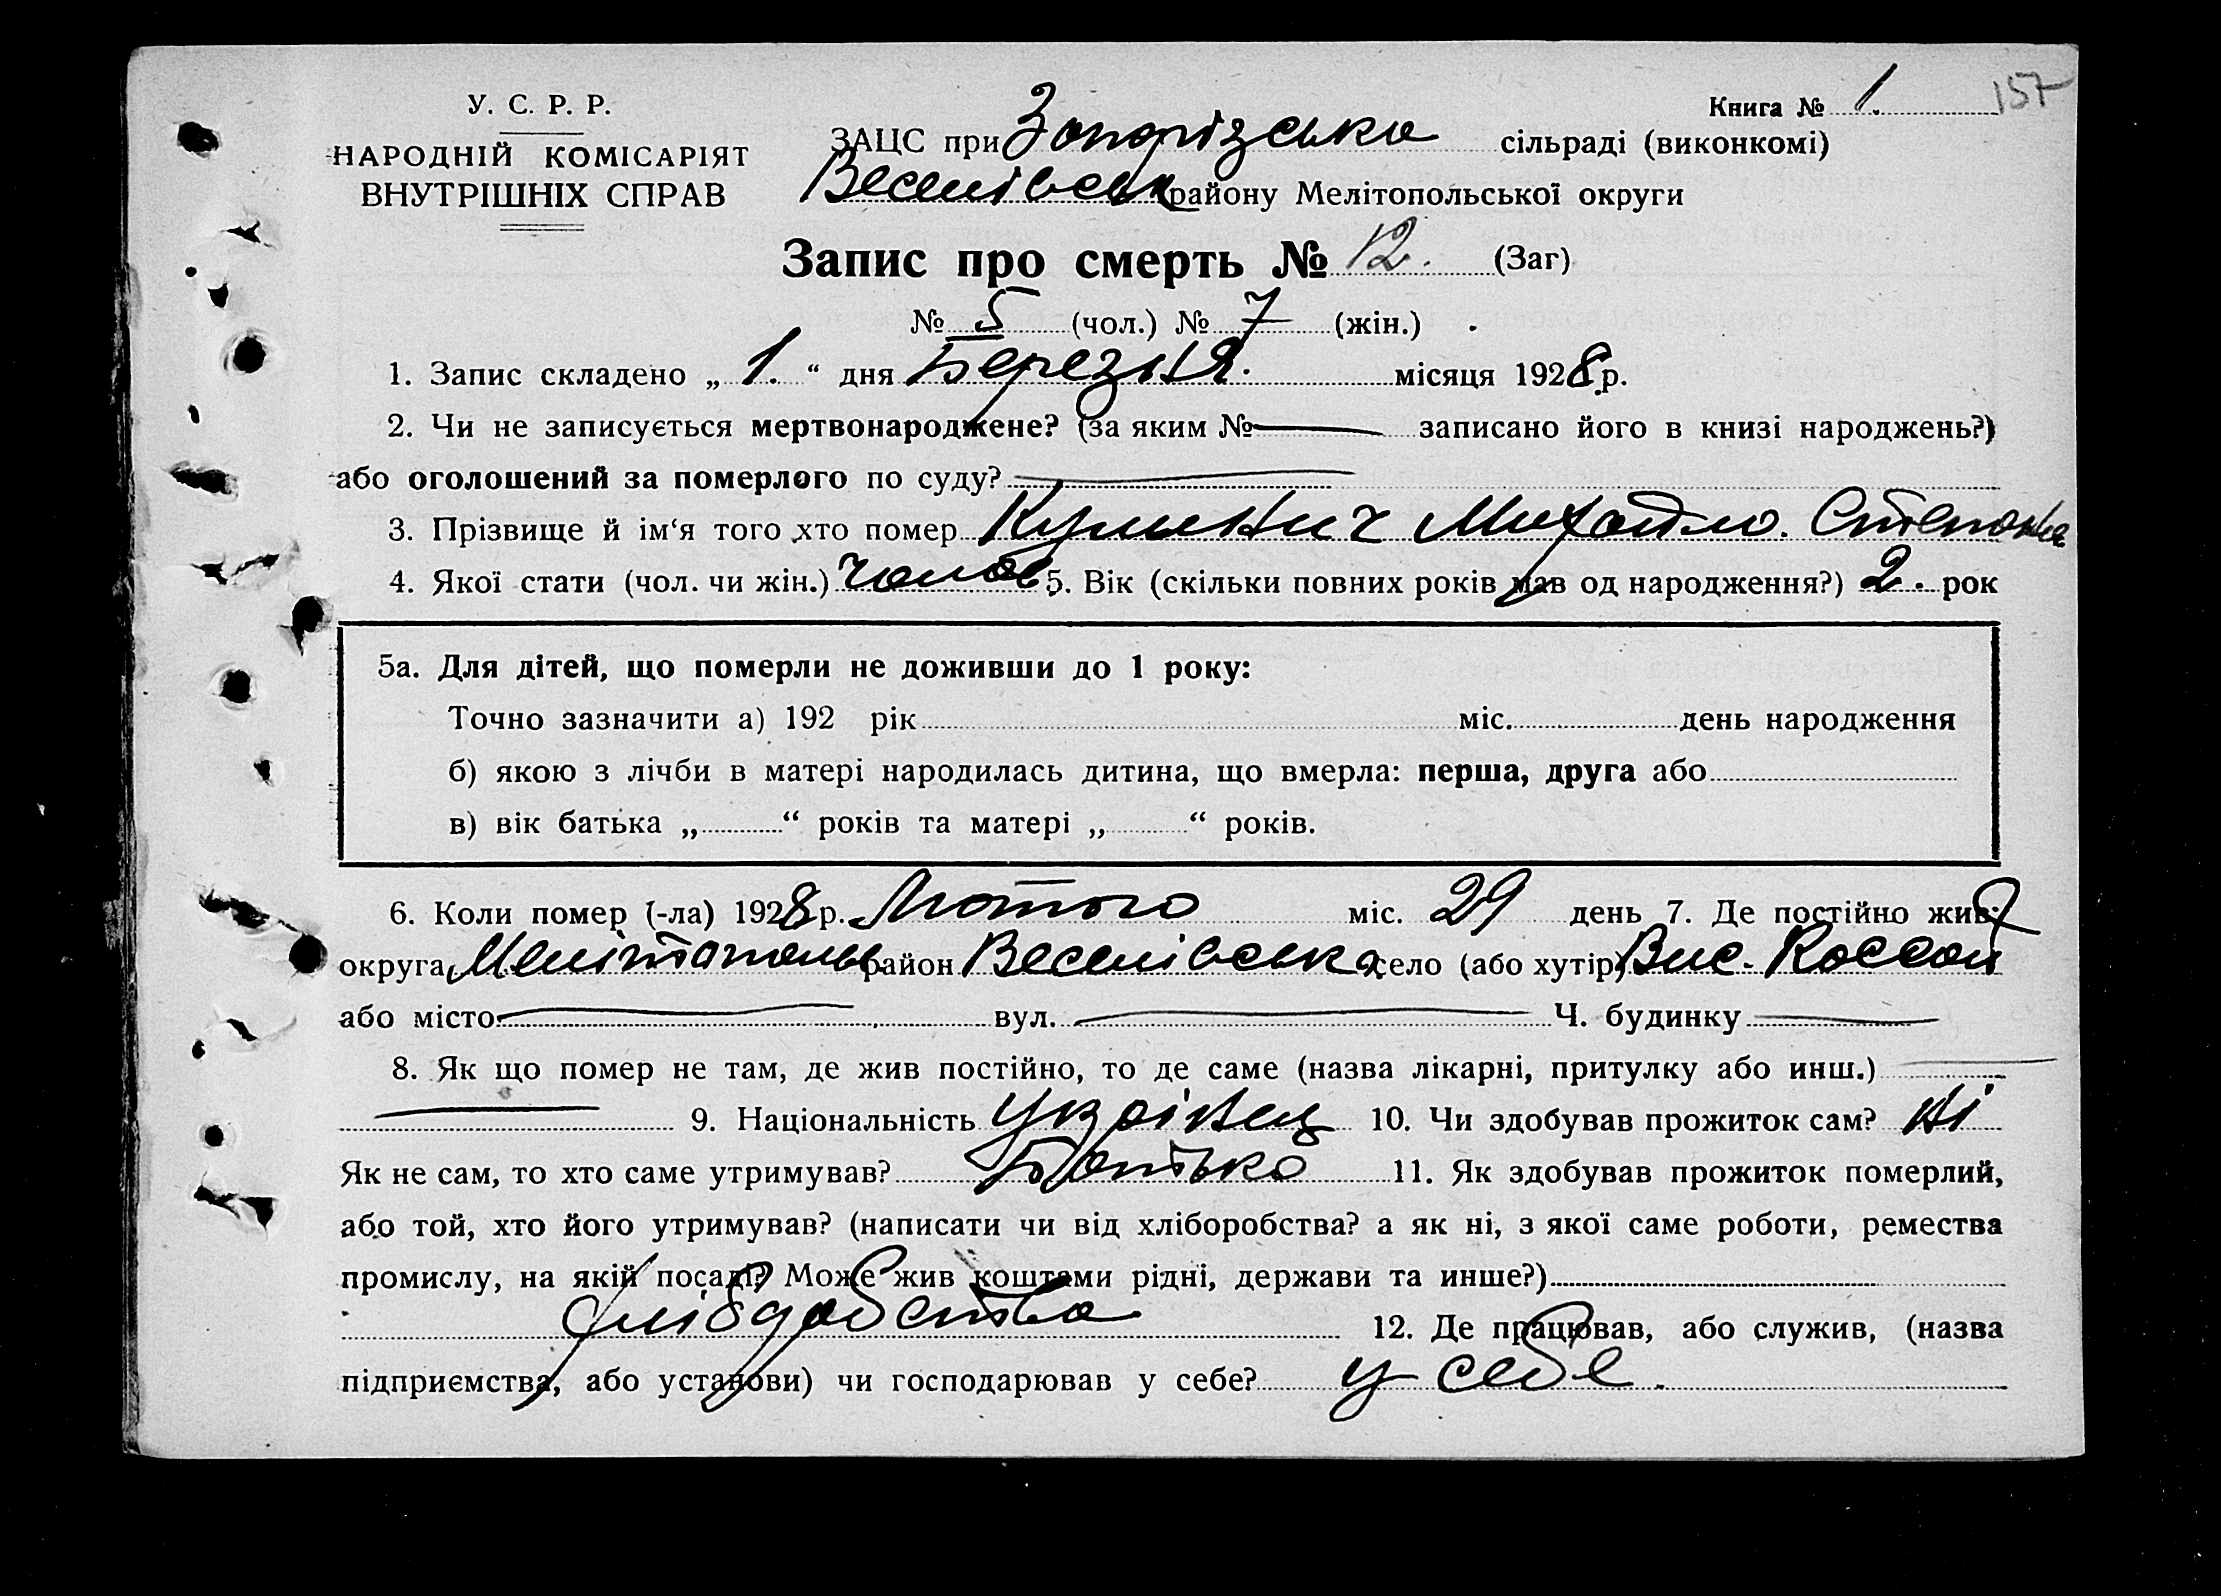 157
У. С. Р. Р.
НАРОДНІЙ КОМІСАРІЯТ
ВНУТРІШНІХ СПРАВ
Книга № 1.
ЗАЦС при Запорізська сільраді (виконкомі)
Веселівськ району Мелітопольської округи
Запис про смерть № 12. (Заг)
№ 5 (чол.) № 7 (жін.)
1. Запис складено „ 1. “ дня Березня. місяця 1928 р.
2. Чи не записується мертвонароджене? (за яким № записано його в книзі народжень?)
або оголошений за померлого по суду?
3. Прізвище й ім‘я того хто помер Михайло.
4. Якої стати (чол. чи жін.) чолов 5. Вік (скільки повних років мав од народження?) 2. рок
5а. Для дітей, що померли не доживши до 1 року:
Точно зазначити а) 192 рік міс. день народження
б) якою з лічби в матері народилась дитина, що вмерла: перша, друга або
в) вік батька „ “ років та матері „ “ років.
6. Коли помер (-ла) 1928 р. Лютого міс. 29 день 7. Де постійно жив:
округа Мелітополь район Веселівська село (або хутір) Вис.
або місто вул. Ч. будинку
8. Як що помер не там, де жив постійно, то де саме (назва лікарні, притулку або инш.)
9. Національність Українец 10. Чи здобував прожиток сам? Ні
Як не сам, то хто саме утримував? Батько 11. Як здобував прожиток померлий,
або той, хто його утримував? (написати чи від хліборобства? а як ні, з якої саме роботи, ремества
промислу, на якій посаді? Може жив коштами рідні, держави та инше?)
12. Де працював, або служив, (назва
підприємства, або установи) чи господарював у себе? у себе.